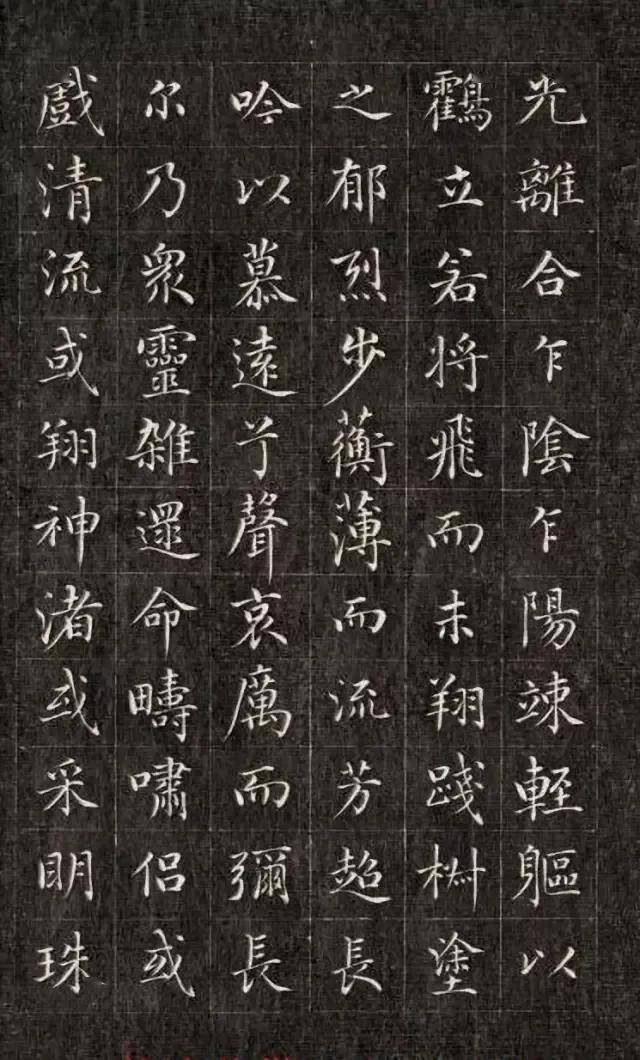 光離合乍陰乍陽竦輕軀以
鸖立若将飛而未翔踐椒塗
之郁烈步蘅薄而流芳超長
吟以慕遠兮聲哀厲而彌長
尔乃眾靈雜遝命疇嘯侶或
戲清流或翔神渚或采明珠